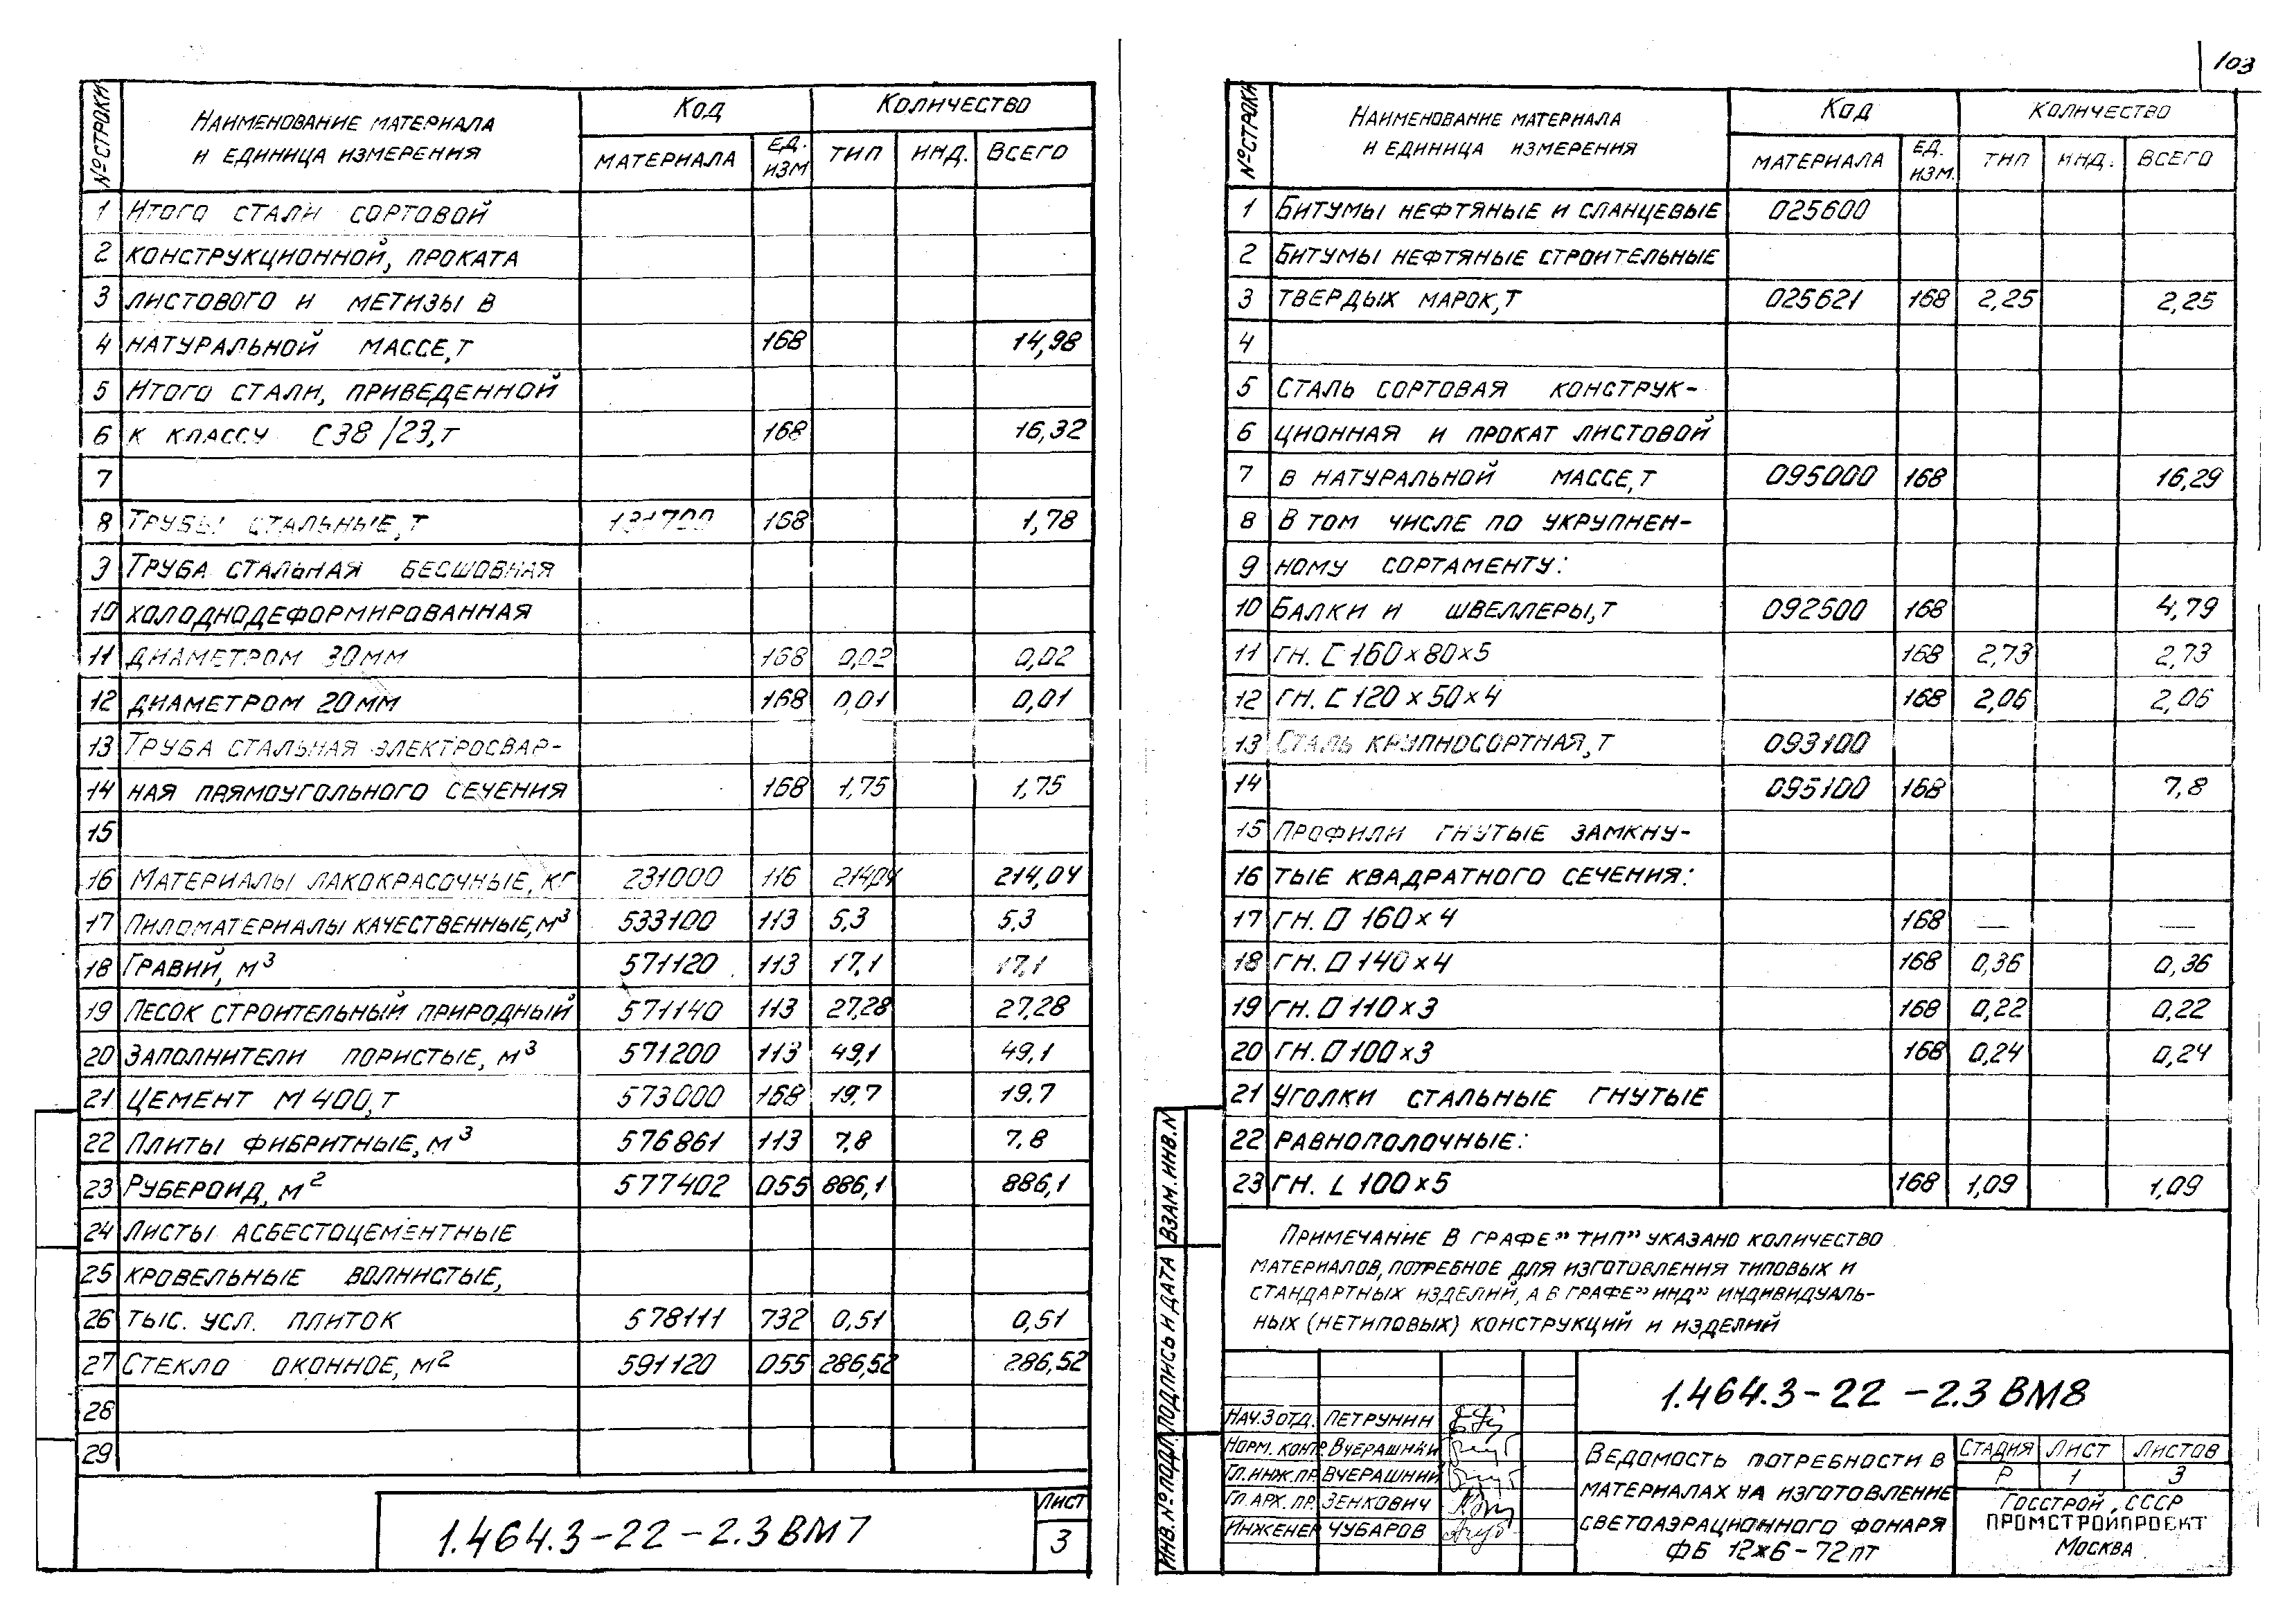 103
№ СТРОКИ
НАИМЕНОВАНИЕ МАТЕРИАЛА И ЕДИНИЦА ИЗМЕРЕНИЯ
КОД
КОЛИЧЕСТВО
МАТЕРИАЛА ЕД. ИЗМ ТИП ИНД. ВСЕГО
1 ИТОГО СТАЛИ СОРТОВОЙ
2 КОНСТРУКЦИОННОЙ, ПРОКАТА
3 ЛИСТОВОГО И МЕТИЗЫ В
4 НАТУРАЛЬНОЙ МАССЕ,Т 168 14,98
5 ИТОГО СТАЛИ, ПРИВЕДЕННОЙ
6 К КЛАССУ С38/23,Т 168 16,32
7
8 ТРУБЫ СТАЛЬНЫЕ,Т 131700 168 1,78
9 ТРУБА СТАЛЬНАЯ БЕСШОВНАЯ
10 ХОЛОДНОДЕФОРМИРОВАННАЯ
11 ДИАМЕТРОМ 30ММ 168 0,02 0,02
12 ДИАМЕТРОМ 20ММ 168 0,01 0,01
13 ТРУБА СТАЛЬНАЯ ЭЛЕКТРОСВАР-
14 НАЯ ПРЯМОУГОЛЬНОГО СЕЧЕНИЯ 168 1,75 1,75
15
16 МАТЕРИАЛЫ ЛАКОКРАСОЧНЫЕ, КГ 231000 116 214,04 214,04
17 ПИЛОМАТЕРИАЛЫ КАЧЕСТВЕННЫЕ,М³ 533100 113 5,3 5,3
18 ГРАВИЙ, М³ 571120 113 17,1 17,1
19 ПЕСОК СТРОИТЕЛЬНЫЙ ПРИРОДНЫЙ 571140 113 27,28 27,28
20 ЗАПОЛНИТЕЛИ ПОРИСТЫЕ, М³ 571200 113 49,1 49,1
21 ЦЕМЕНТ М400,Т 573000 168 19,7 19,7
22 ПЛИТЫ ФИБРИТНЫЕ, М³ 576861 113 7,8 7,8
23 РУБЕРОИД, М² 577402 055 886,1 886,1
24 ЛИСТЫ АСБЕСТОЦЕМЕНТНЫЕ
25 КРОВЕЛЬНЫЕ ВОЛНИСТЫЕ,
26 ТЫС. УСЛ. ПЛИТОК 578111 732 0,51 0,51
27 СТЕКЛО ОКОННОЕ, М² 591120 055 286,52 286,52
28
29
1.464.3-22-2.3 ВМ7
ЛИСТ
3
№ СТРОКА
НАИМЕНОВАНИЕ МАТЕРИАЛА И ЕДИНИЦА ИЗМЕРЕНИЯ
КОД
КОЛИЧЕСТВО
МАТЕРИАЛА ЕД. ИЗМ. ТИП ИНД. ВСЕГО
1 БИТУМЫ НЕФТЯНЫЕ И СЛАНЦЕВЫЕ 025600
2 БИТУМЫ НЕФТЯНЫЕ СТРОИТЕЛЬНЫЕ
3 ТВЕРДЫХ МАРОК,Т 025621 168 2,25 2,25
4
5 СТАЛЬ СОРТОВАЯ КОНСТРУК-
6 ЦИОННАЯ И ПРОКАТ ЛИСТОВОЙ
7 В НАТУРАЛЬНОЙ МАССЕ,Т 095000 168 16,29
8 В ТОМ ЧИСЛЕ ПО УКРУПНЕН-
9 НОМУ СОРТАМЕНТУ:
10 БАЛКИ И ШВЕЛЛЕРЫ,Т 092500 168 4,79
11 ГН. [ 160×80×5 168 2,73 2,73
12 ГН. [ 120×50×4 168 2,06 2,06
13 СТАЛЬ КРУПНОСОРТНАЯ,Т 093100
14 095100 168 7,8
15 ПРОФИЛИ ГНУТЫЕ ЗАМКНУ-
16 ТЫЕ КВАДРАТНОГО СЕЧЕНИЯ:
17 ГН. □ 160×4 168 — —
18 ГН. □ 140×4 168 0,36 0,36
19 ГН. □ 110×3 168 0,22 0,22
20 ГН. □ 100×3 168 0,24 0,24
21 УГОЛКИ СТАЛЬНЫЕ ГНУТЫЕ
22 РАВНОПОЛОЧНЫЕ:
23 ГН. L 100×5 168 1,09 1,09
ПРИМЕЧАНИЕ В ГРАФЕ "ТИП" УКАЗАНО КОЛИЧЕСТВО
МАТЕРИАЛОВ, ПОТРЕБНОЕ ДЛЯ ИЗГОТОВЛЕНИЯ ТИПОВЫХ И
СТАНДАРТНЫХ ИЗДЕЛИЙ, А В ГРАФЕ "ИНД" ИНДИВИДУАЛЬ-
НЫХ (НЕТИПОВЫХ) КОНСТРУКЦИЙ И ИЗДЕЛИЙ
ИНВ. № ПОДЛ. ПОДПИСЬ И ДАТА ВЗАМ. ИНВ. N
НАЧ.З ОТД. ПЕТРУНИН
НОРМ. КОНТР. ВЧЕРАШНИЙ
ГЛ. ИНЖ. ПР. ВЧЕРАШНИЙ
ГЛ. АРХ. ПР. ЗЕНКОВИЧ
ИНЖЕНЕР ЧУБАРОВ
1.464.3-22-2.3 ВМ8
ВЕДОМОСТЬ ПОТРЕБНОСТИ В
МАТЕРИАЛАХ НА ИЗГОТОВЛЕНИЕ
СВЕТОАЭРАЦИОННОГО ФОНАРЯ
ФБ 12×6-72ПТ
СТАДИЯ ЛИСТ ЛИСТОВ
Р 1 3
ГОССТРОЙ СССР
ПРОМСТРОЙПРОЕКТ
МОСКВА